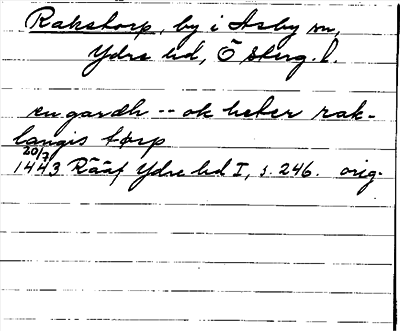 Rakstorp, by i Asby sn,
Ydre hd, Östерg. l.
en gardh -- ok heter rak-
langis torp
20/7
1443 Rääf Ydre hd I, s. 246. orig.